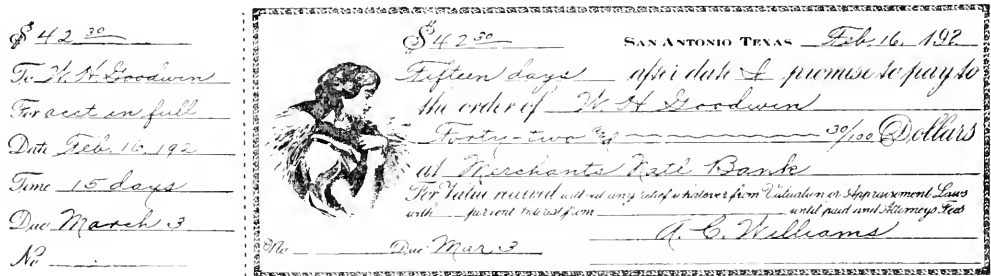 $ 42 30
To W. H. Goodwin
For acct in full
Date Feb. 16, 192
Time 15 days
Due March 3
No
$ 42 30 San Antonio Texas Feb. 16, 192
Fifteen days after date I promise to pay to
the order of W H Goodwin
Forty-two & 30/100 Dollars
at Merchants Natl Bank
For Value received without any relief whatever from Valuation or Appraisement Laws
with per cent interest from until paid and Attorneys Fees
A. C. Williams
No Due Mar. 3